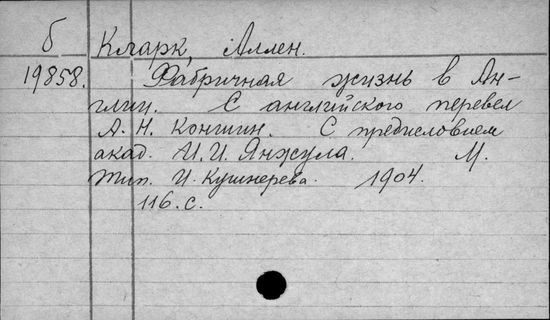 б Кларк, Аллен.
19858. Фабричная жизнь в Ан-
глии. С английского перевел
А. Н. Коншин. С предисловием
акад. И. И. Янжула. М.
Тип. И. Кушнерева. 1904.
116. с.